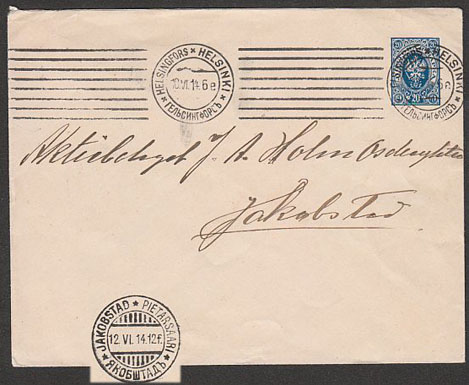 HELSINGFORS * HELSINKI * ГЕЛЬСИНГФОРСЪ *
10.VI.14.6e
HELSINGFORS * HELSINKI * ГЕЛЬСИНГФОРСЪ *
20 20
Aktiebolaget J. A. Holm
Jakobstad
JAKOBSTAD * PIETARSAARI * ЯКОБШТАДЪ *
12.VI.14.12f.